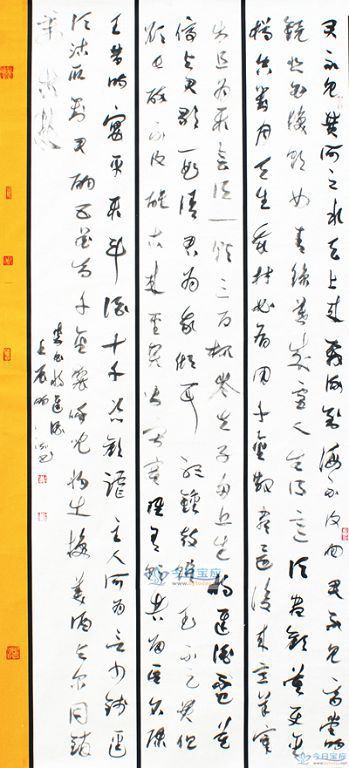 君不見黃河之水天上來奔流到海不復回君不見高堂明
鏡悲白髮朝如青絲暮成雪人生得意須盡歡莫使金
樽空對月天生我材必有用千金散盡還復來烹羊宰
牛且為樂會須一飲三百杯岑夫子丹丘生將進酒杯莫
停與君歌一曲請君為我傾耳聽鐘鼓饌玉不足貴但
願長醉不復醒古來聖賢皆寂寞惟有飲者留其名陳
王昔時宴平樂斗酒十千恣歡謔主人何為言少錢徑
須沽取對君酌五花馬千金裘呼兒將出換美酒與爾同銷
萬古愁
李白將進酒
壬辰
今日宝应
今日宝应